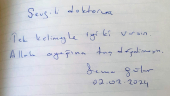 Sevgili doktorum
Tek kelimeyle iyi ki varsın
Allah ayağına taş değdirmesin.
Sema Güler
02.02.2024